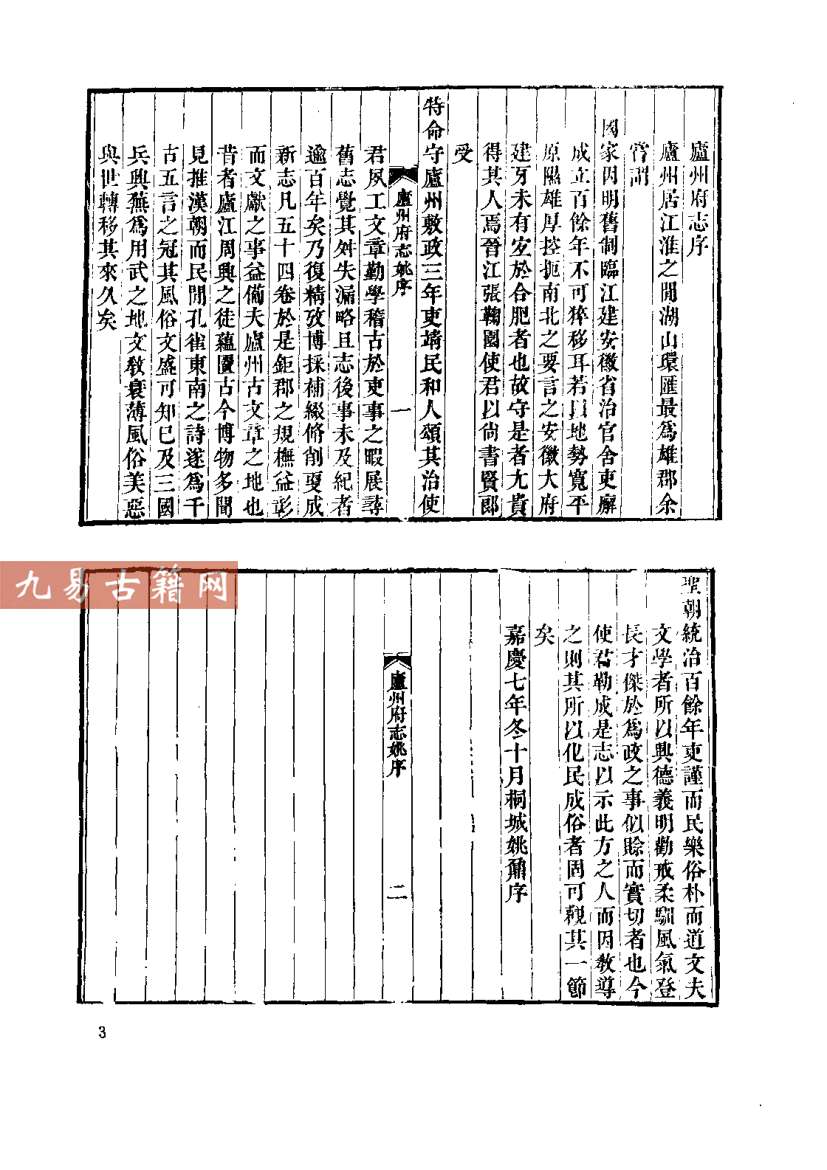 廬州府志序
廬州居江淮之閒湖山環匯最爲雄郡余
嘗謂
國家因明舊制臨江建安徽省治官舍吏廨
成立百餘年不可猝移耳若以地勢寬平
原隰雄厚控扼南北之要言之安徽大府
建牙未有宜於合肥者也故守是者尤貴
得其人焉晉江張鞠園使君以尙書賢郞
受
特命守廬州敷政三年吏靖民和人頌其治使
廬州府志姚序
一
君夙工文章勤學稽古於吏事之暇展尋
舊志覺其舛失漏略且志後事未及紀者
逾百年矣乃復精攷博採補綴脩削戛成
新志凡五十四卷於是鉅郡之規橅益彰
而文獻之事益備夫廬州古文章之地也
昔者廬江周興之徒蘊匵古今博物多聞
見推漢朝而民閒孔雀東南之詩遂爲千
古五言之冠其風俗文盛可知已及三國
兵興蕪爲用武之地文敎衰薄風俗美惡
與世轉移其來久矣
聖朝統治百餘年吏謹而民樂俗朴而道文夫
文學者所以興德義明勸戒柔馴風氣登
長才傑於爲政之事似賒而實切者也今
使君勒成是志以示此方之人而因敎導
之則其所以化民成俗者固可觀其一節
矣
嘉慶七年冬十月桐城姚鼐序
廬州府志姚序
二
九易古籍网
3